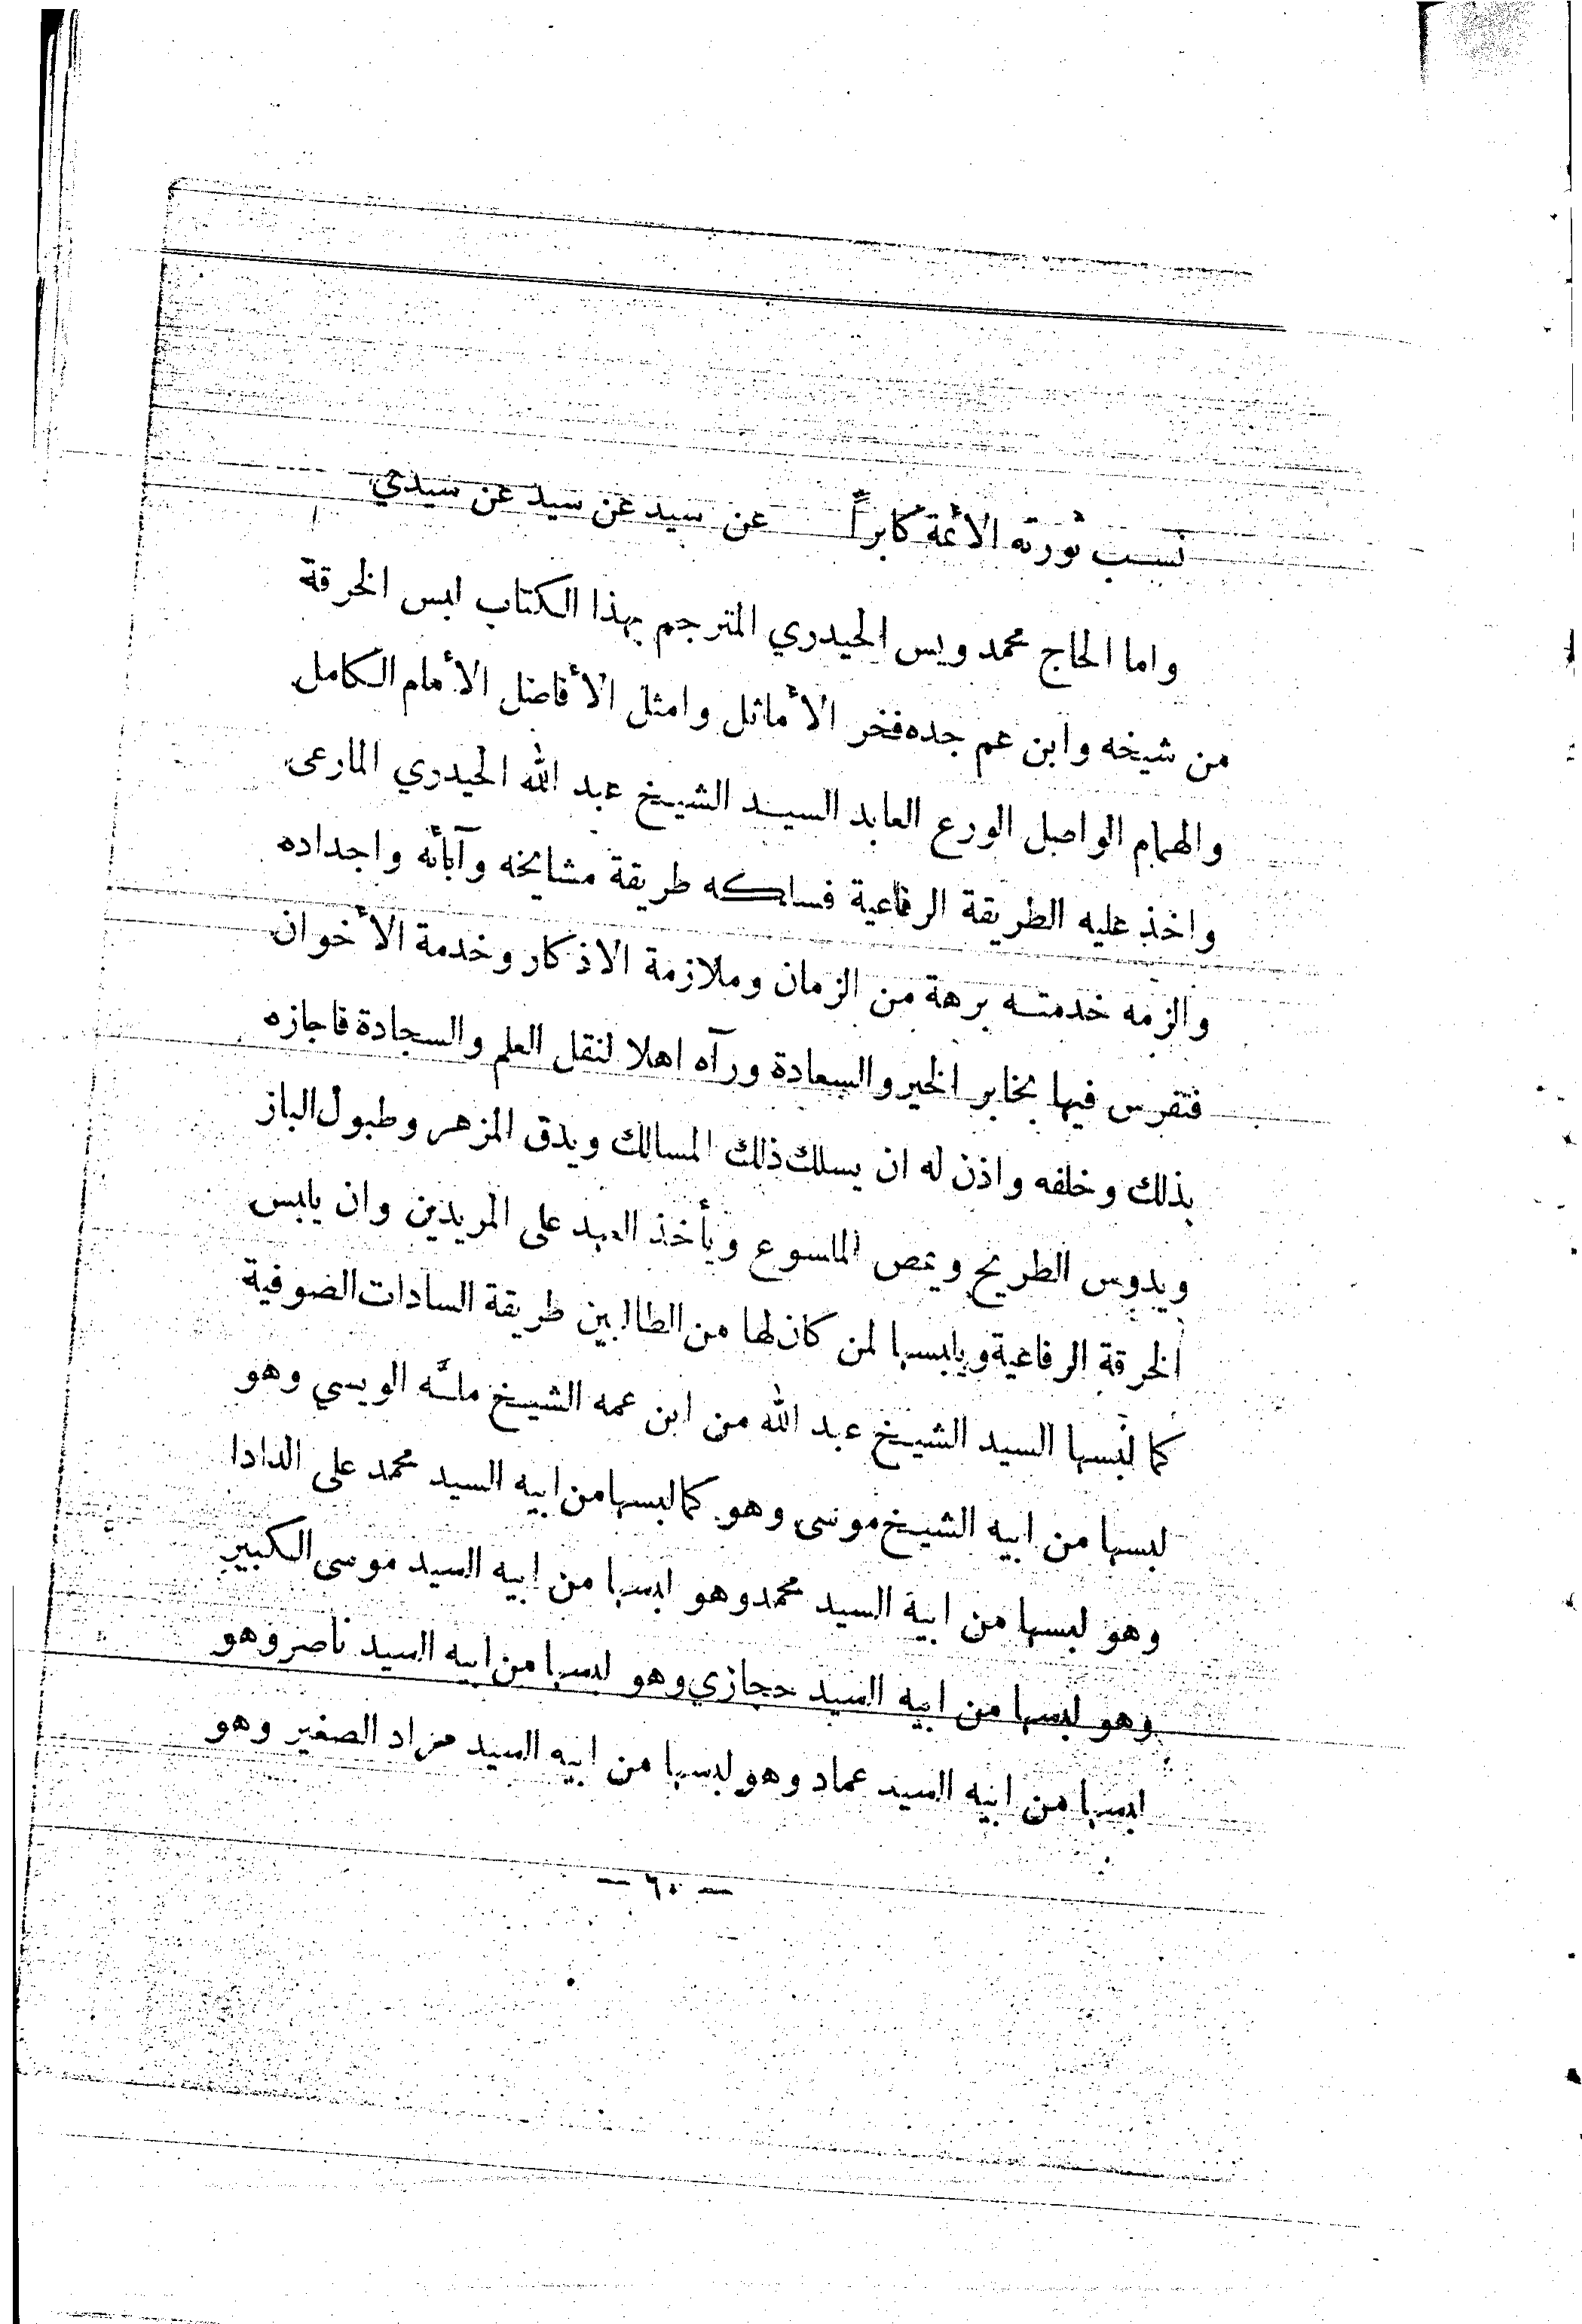 نسب تورثه الأئمة كابراً عن سيد عن سيد عن سيدحي
واما الحاج محمد ويس الحيدري المترجم بهذا الكتاب لبس الخرقة
من شيخه وابن عم جده فخر الأماثل وامثل الأفاضل الأمام الكامل
والهمام الواصل الورع العابد السيد الشيخ عبد الله الحيدري المارعى
واخذ عليه الطريقة الرفاعية فسلكه طريقة مشايخه وآبائه واجداده
والزمه خدمته برهة من الزمان وملازمة الاذكار وخدمة الأخوان
فتفرس فيها بخابر الخير والسعادة ورآه اهلا لنقل العلم والسجادة فاجازه
بذلك وخلفه واذن له ان يسلك ذلك المسالك ويدق المزهر وطبول الباز
ويدوس الطريح ويمص الملسوع ويأخذ العهد على المريدين وان يلبس
الخرقة الرفاعية ويلبسها لمن كان لها من الطالبين طريقة السادات الضوفية
كما لبسها السيد الشيخ عبد الله من ابن عمه الشيخ ملله الويسي وهو
لبسها من ابيه الشيخ موسى وهو كما لبسها من ابيه السيد محمد على الدادا
وهو لبسها من ابية السيد محمد وهو لبسها من ابيه السيد موسى الكبير
وهو لبسها من ابيه السيد حجازي وهو لبسها من ابيه السيد ناصر وهو
لبسها من ابيه السيد عماد وهو لبسها من ابيه السيد مراد الصغير وهو
— ٦٠ —